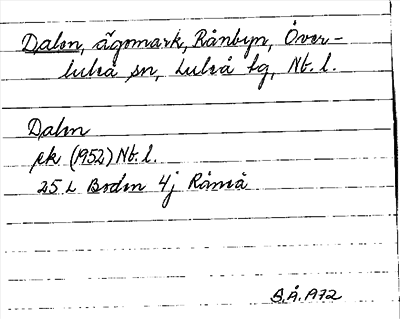 Dalen, ägomark, Rånbyn, Över-
luleå sn, Luleå tg, Nb. l.
Dalen
ek (1952) Nb. l.
25 L Boden 4j Råneå
B.Å. 1972